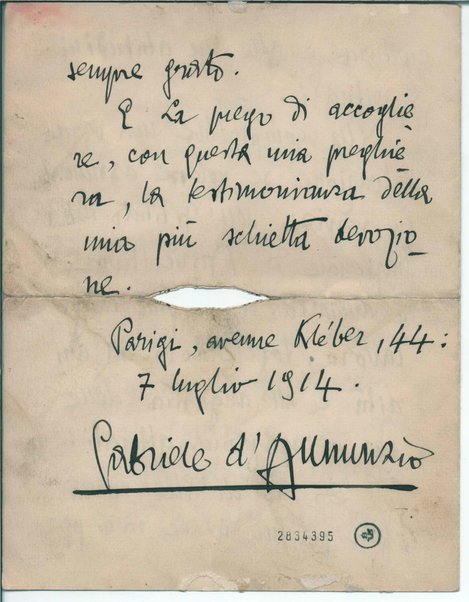 sempre grato.
E La prego di accoglie
re, con questa mia preghie
ra, la testimonianza della
mia più schietta devozio
ne.
Parigi, avenue Kléber, 44:
7 luglio 1914.
Gabriele d'Annunzio
2834395